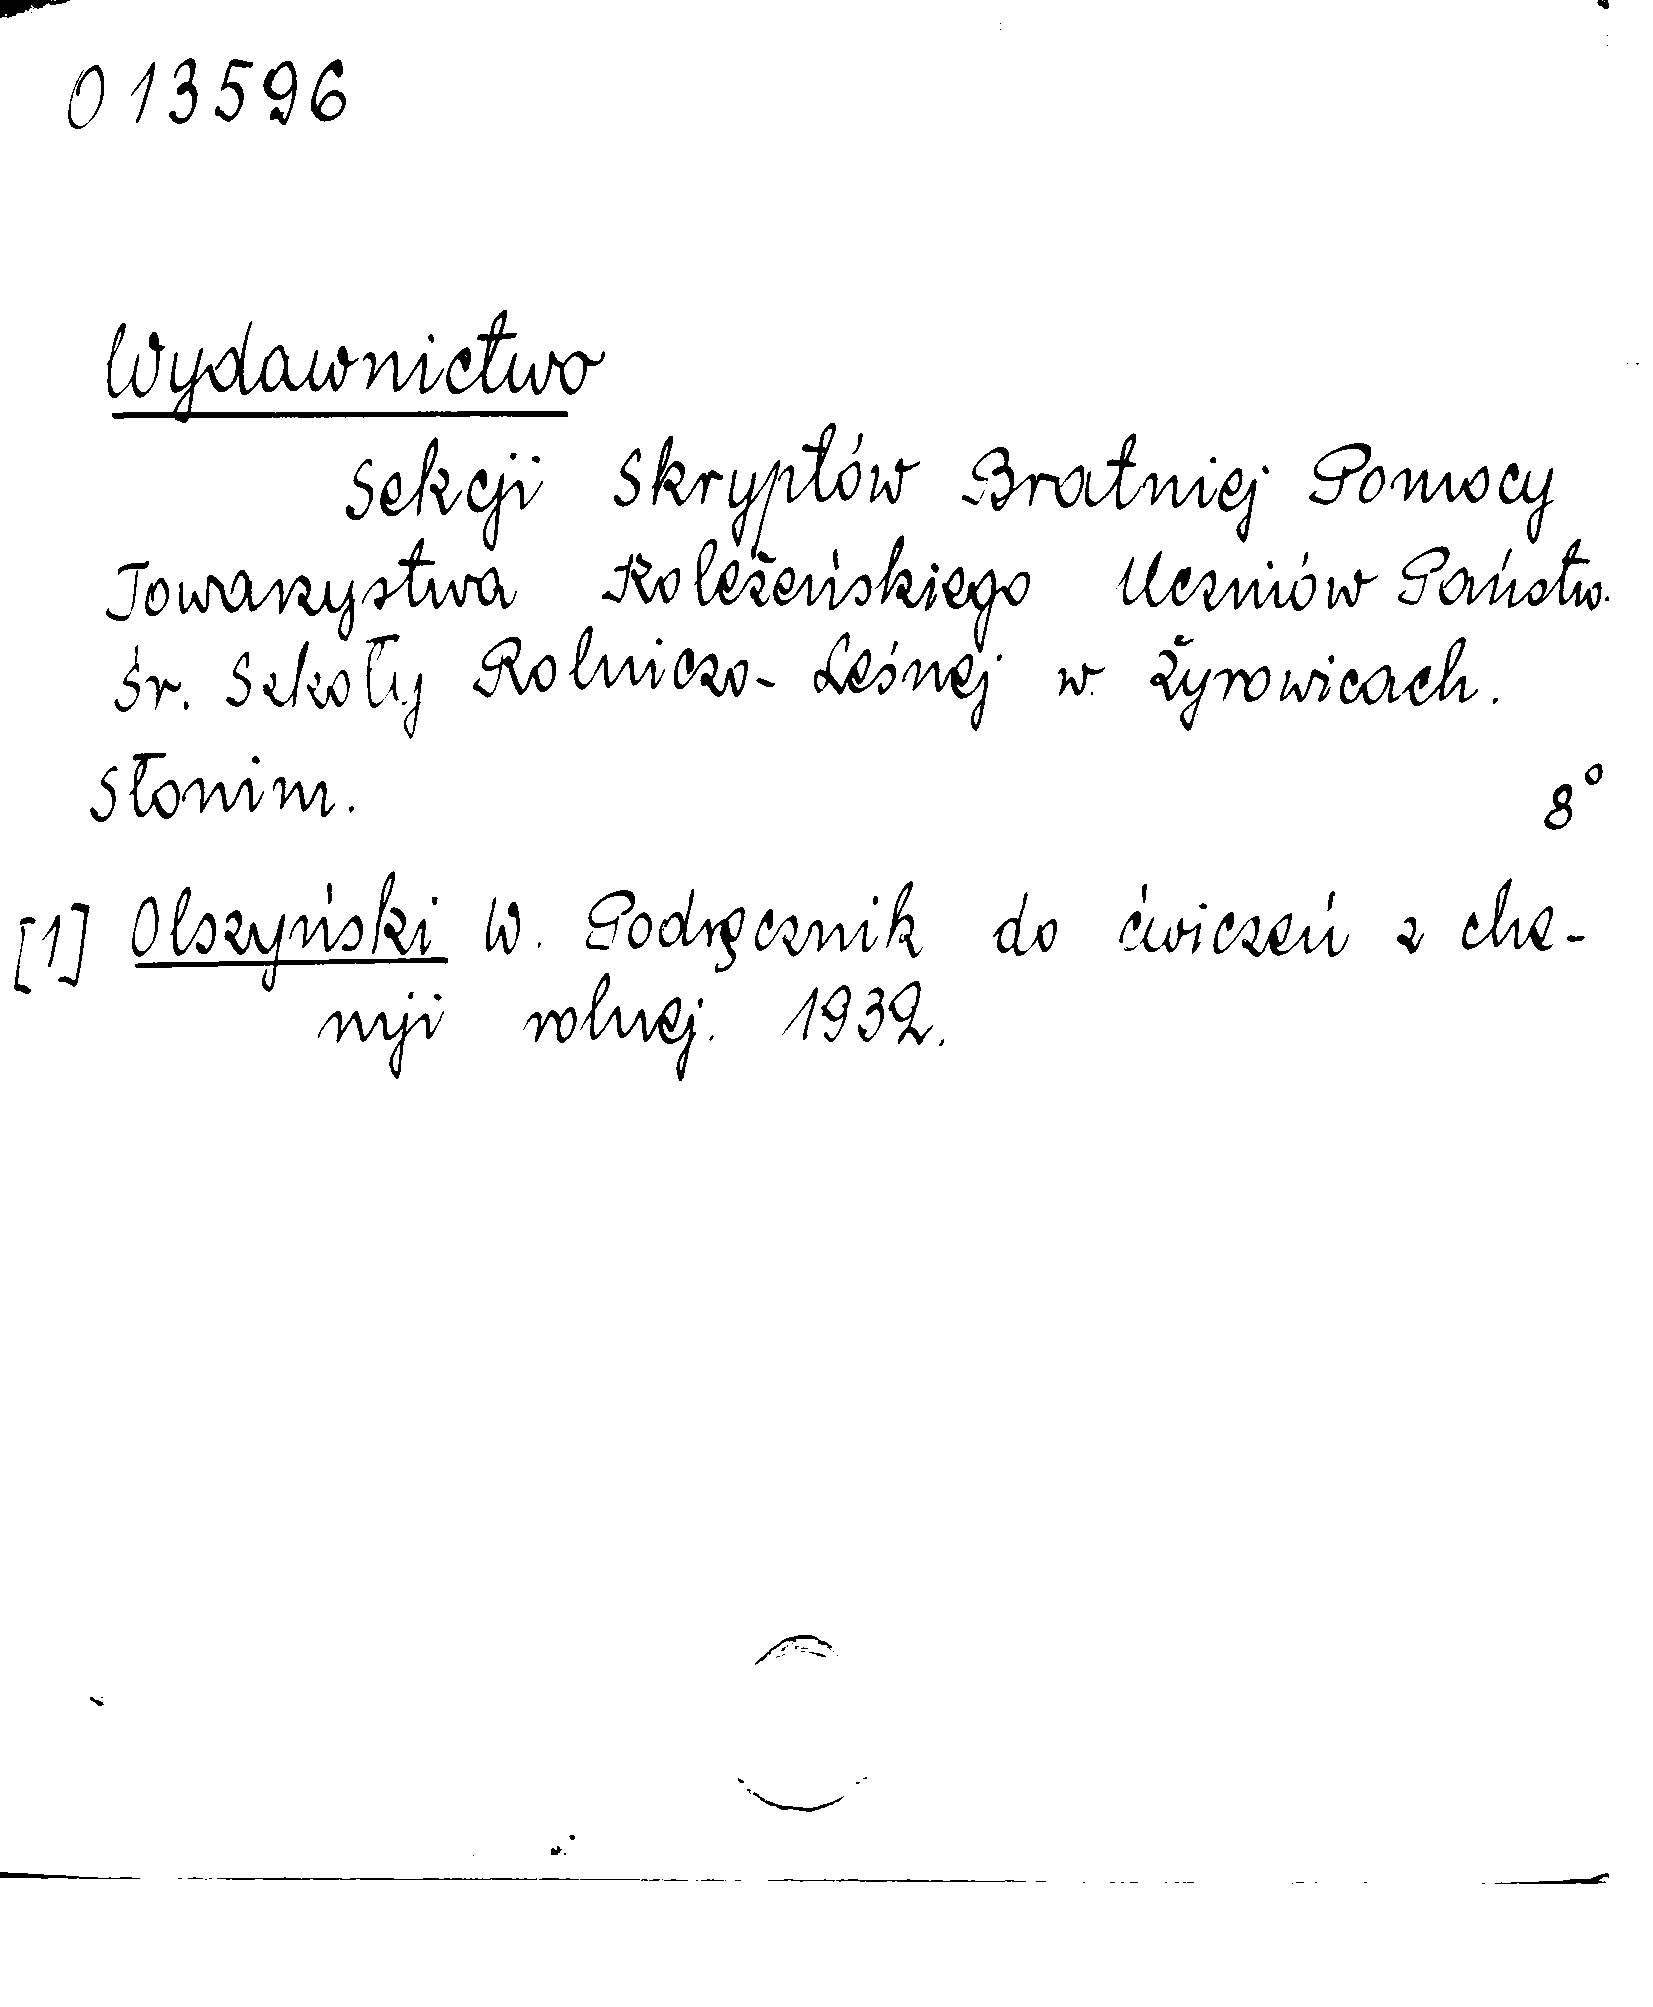 013596
Wydawnictwo
Sekcji Skryptów Bratniej Pomocy
Towarzystwa Koleżeńskiego Uczniów Państw.
Śr. Szkoły Rolniczo-Leśnej w Żyrowicach.
Słonim. 8°
[1] Olszyński W. Podręcznik do ćwiczeń z che-
mji rolnej. 1932.